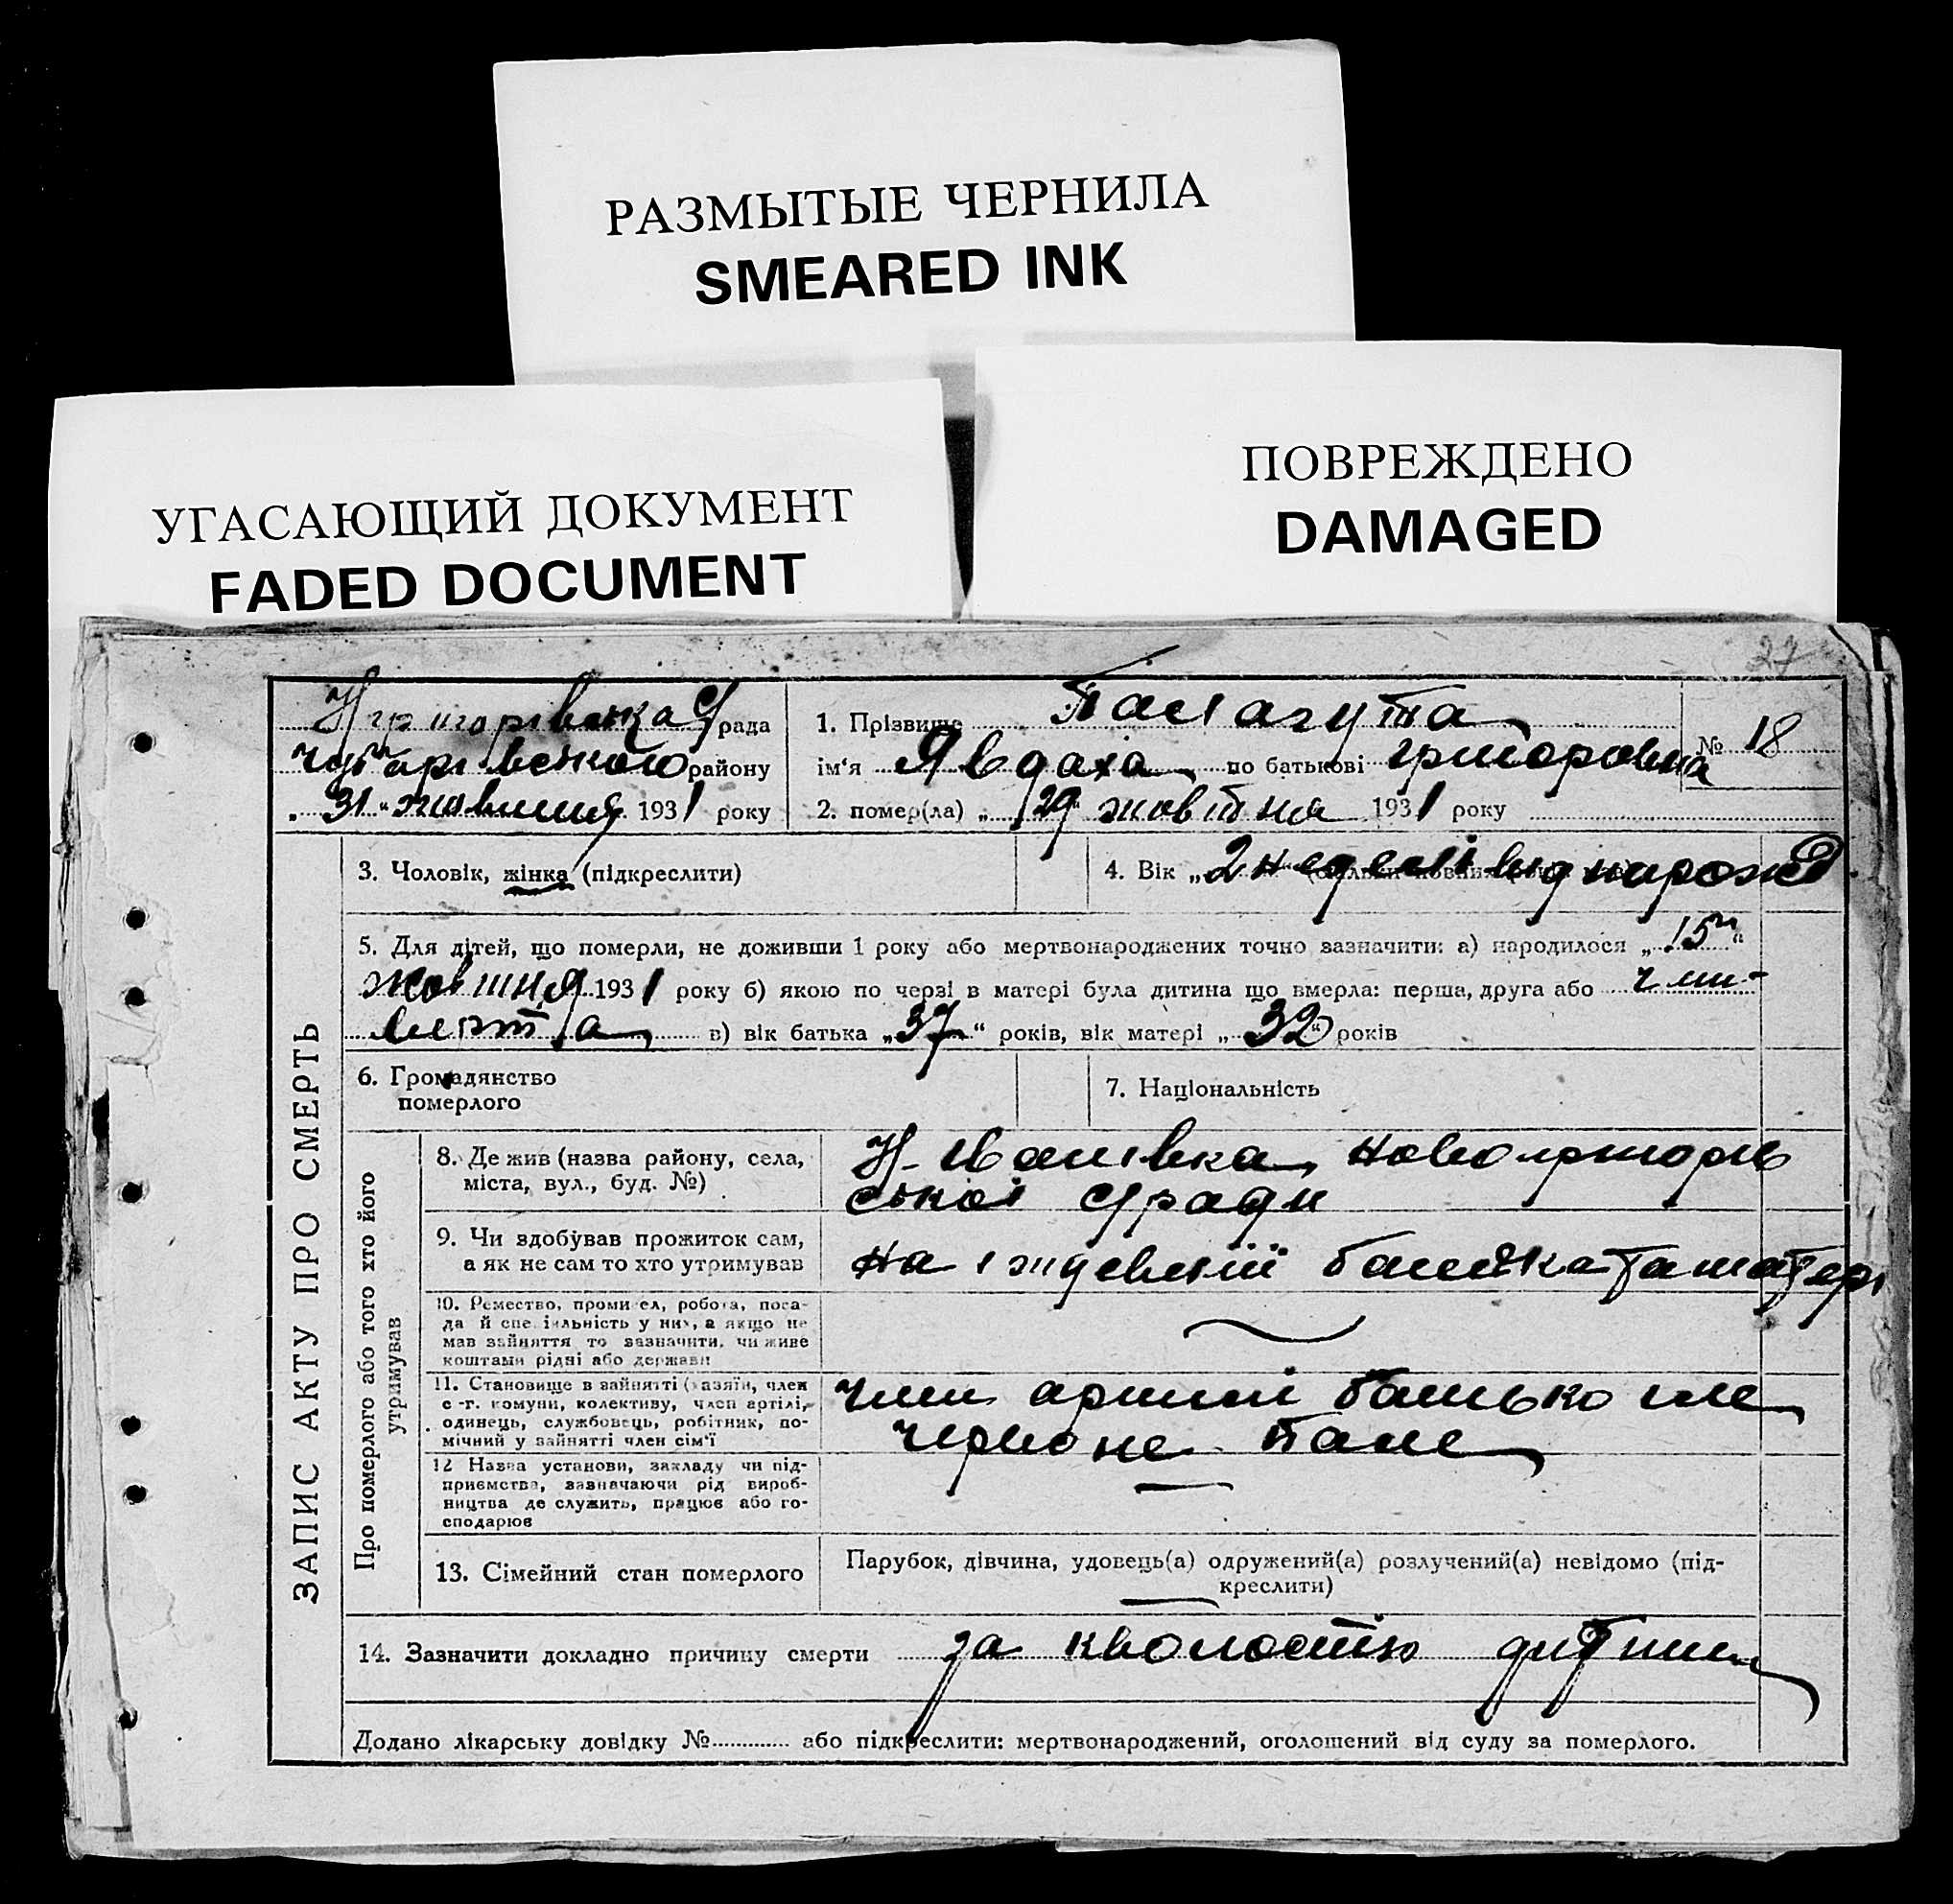 РАЗМЫТЫЕ ЧЕРНИЛА
SMEARED INK
УГАСАЮЩИЙ ДОКУМЕНТ
FADED DOCUMENT
ПОВРЕЖДЕНО
DAMAGED
27
Н григорівська с/рада
чутарівського району
"31" жовтня 1931 року
1. Прізвище
№ 18
ім'я Явдаха по батькові григоровна
2. помер(ла) „29" жовтня 1931 року
ЗАПИС АКТУ ПРО СМЕРТЬ
3. Чоловік, жінка (підкреслити)
4. Вік „2 неделі від нарож
5. Для дітей, що померли, не доживши 1 року або мертвонароджених точно зазначити: а) народилося „15"
жовтня 1931 року б) якою по черзі в матері була дитина що вмерла: перша, друга або чет-
верта в) вік батька „37" років, вік матері „32" років
6. Громадянство
померлого
7. Національність
Про померлого або того хто його
утримував
8. Де жив (назва району, села,
міста, вул., буд. №)
Н-Іванівка, новогригорів
ської с/ради
9. Чи здобував прожиток сам,
а як не сам то хто утримував
на іждевенії батька та матері
10. Ремество, промисел, робота, поса-
да й спеціяльність у них, а якщо не
мав зайняття то зазначити, чи живе
коштами рідні або держави
11. Становище в зайнятті (хазяїн, член
с.-г. комуни, колективу, член артілі,
одинець, службовець, робітник, по-
мічний у зайнятті член сім'ї
член артілі батько
червоне поле
12 Назва установи, закладу чи під-
приємства, зазначаючи рід вироб-
ництва де служить, працює або го-
сподарює
13. Сімейний стан померлого
Парубок, дівчина, удовець(а) одружений(а) розлучений(а) невідомо (під-
креслити)
14. Зазначити докладно причину смерти за кволостю дитини
Додано лікарську довідку № або підкреслити: мертвонароджений, оголошений від суду за померлого.